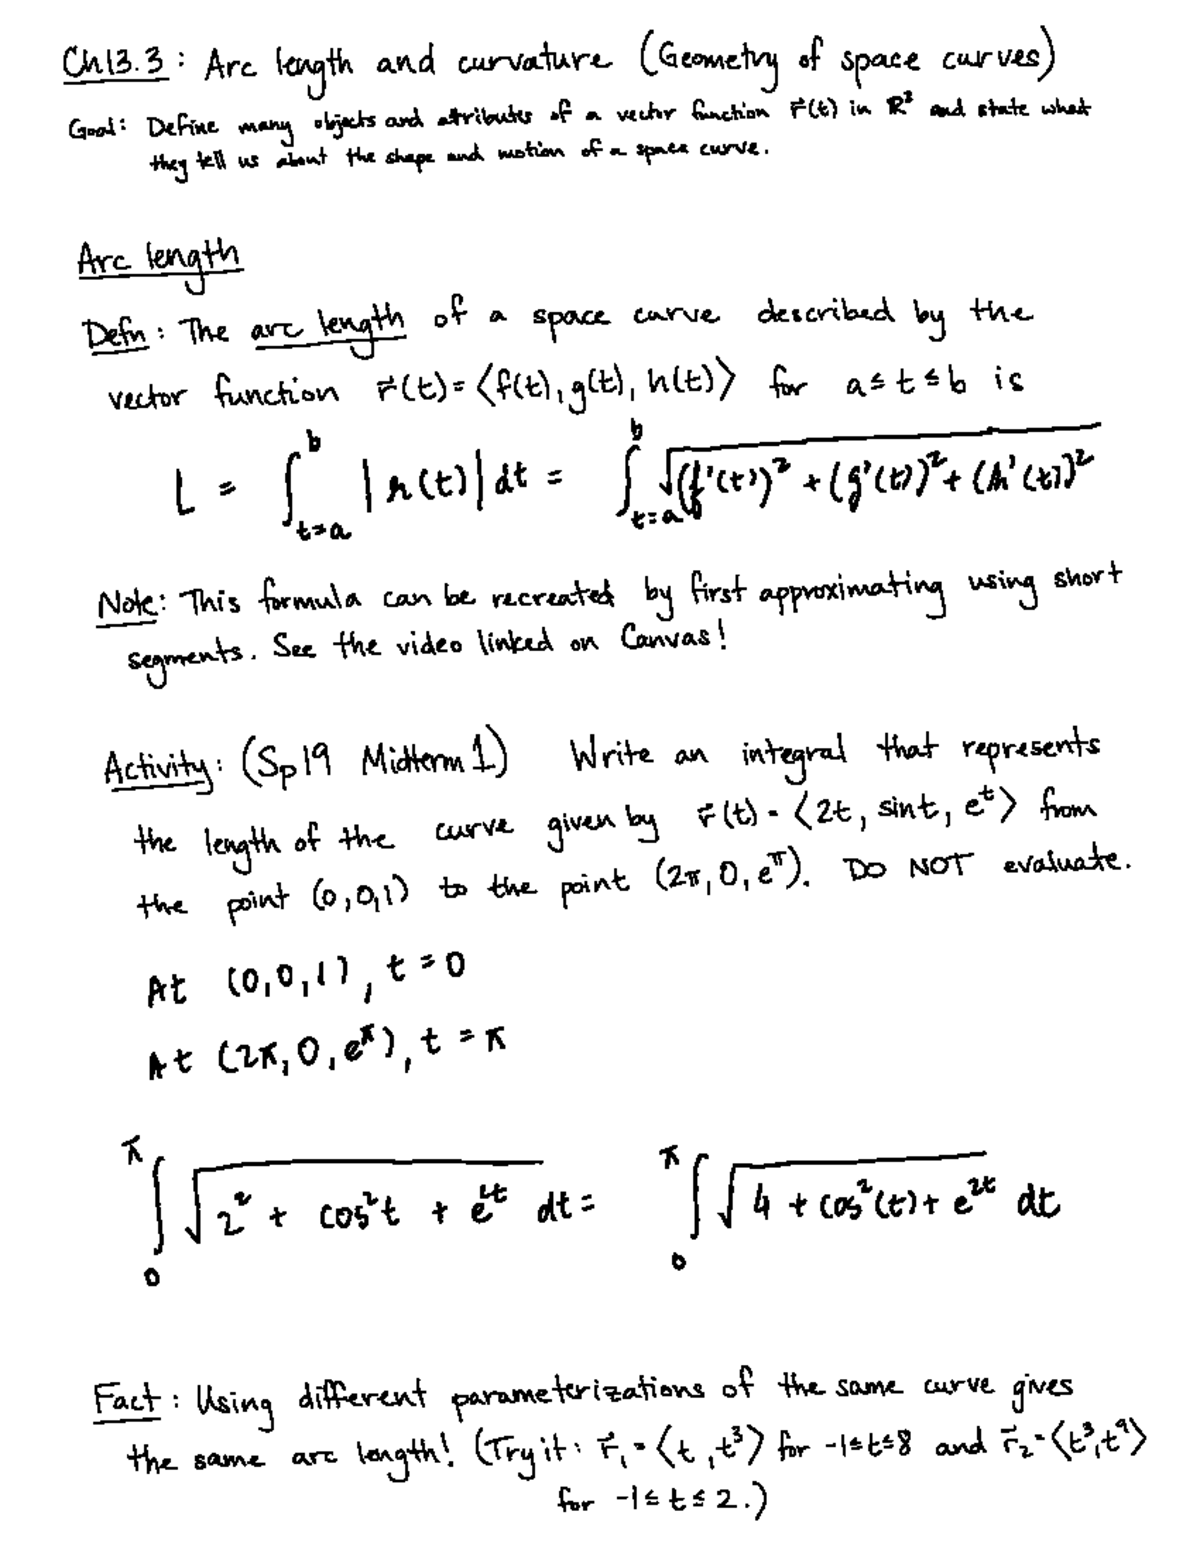 Ch13.3: Arc length and curvature (Geometry of space curves)
Goal: Define many objects and attributes of a vector function r⃗(t) in ℝ³ and state what
they tell us about the shape and motion of a space curve.
Arc length
Defn: The arc length of a space curve described by the
vector function r⃗(t)=⟨f(t), g(t), h(t)⟩ for a≤t≤b is
L = ∫_{t=a}^{b} |r(t)| dt = ∫_{t=a}^{b} √((f'(t))² + (g'(t))² + (h'(t))²
Note: This formula can be recreated by first approximating using short
segments. See the video linked on Canvas!
Activity: (Sp19 Midterm 1) Write an integral that represents
the length of the curve given by r⃗(t) = ⟨2t, sint, e^t⟩ from
the point (0,0,1) to the point (2π, 0, e^π). DO NOT evaluate.
At (0,0,1), t = 0
At (2π, 0, e^π), t = π
∫_0^π √(2² + cos²t + e^{2t}) dt = ∫_0^π √(4 + cos²(t) + e^{2t}) dt
Fact: Using different parameterizations of the same curve gives
the same arc length! (Try it: r⃗₁ = ⟨t, t³⟩ for -1≤t≤8 and r⃗₂=⟨t³, t⁹⟩
for -1≤t≤2.)